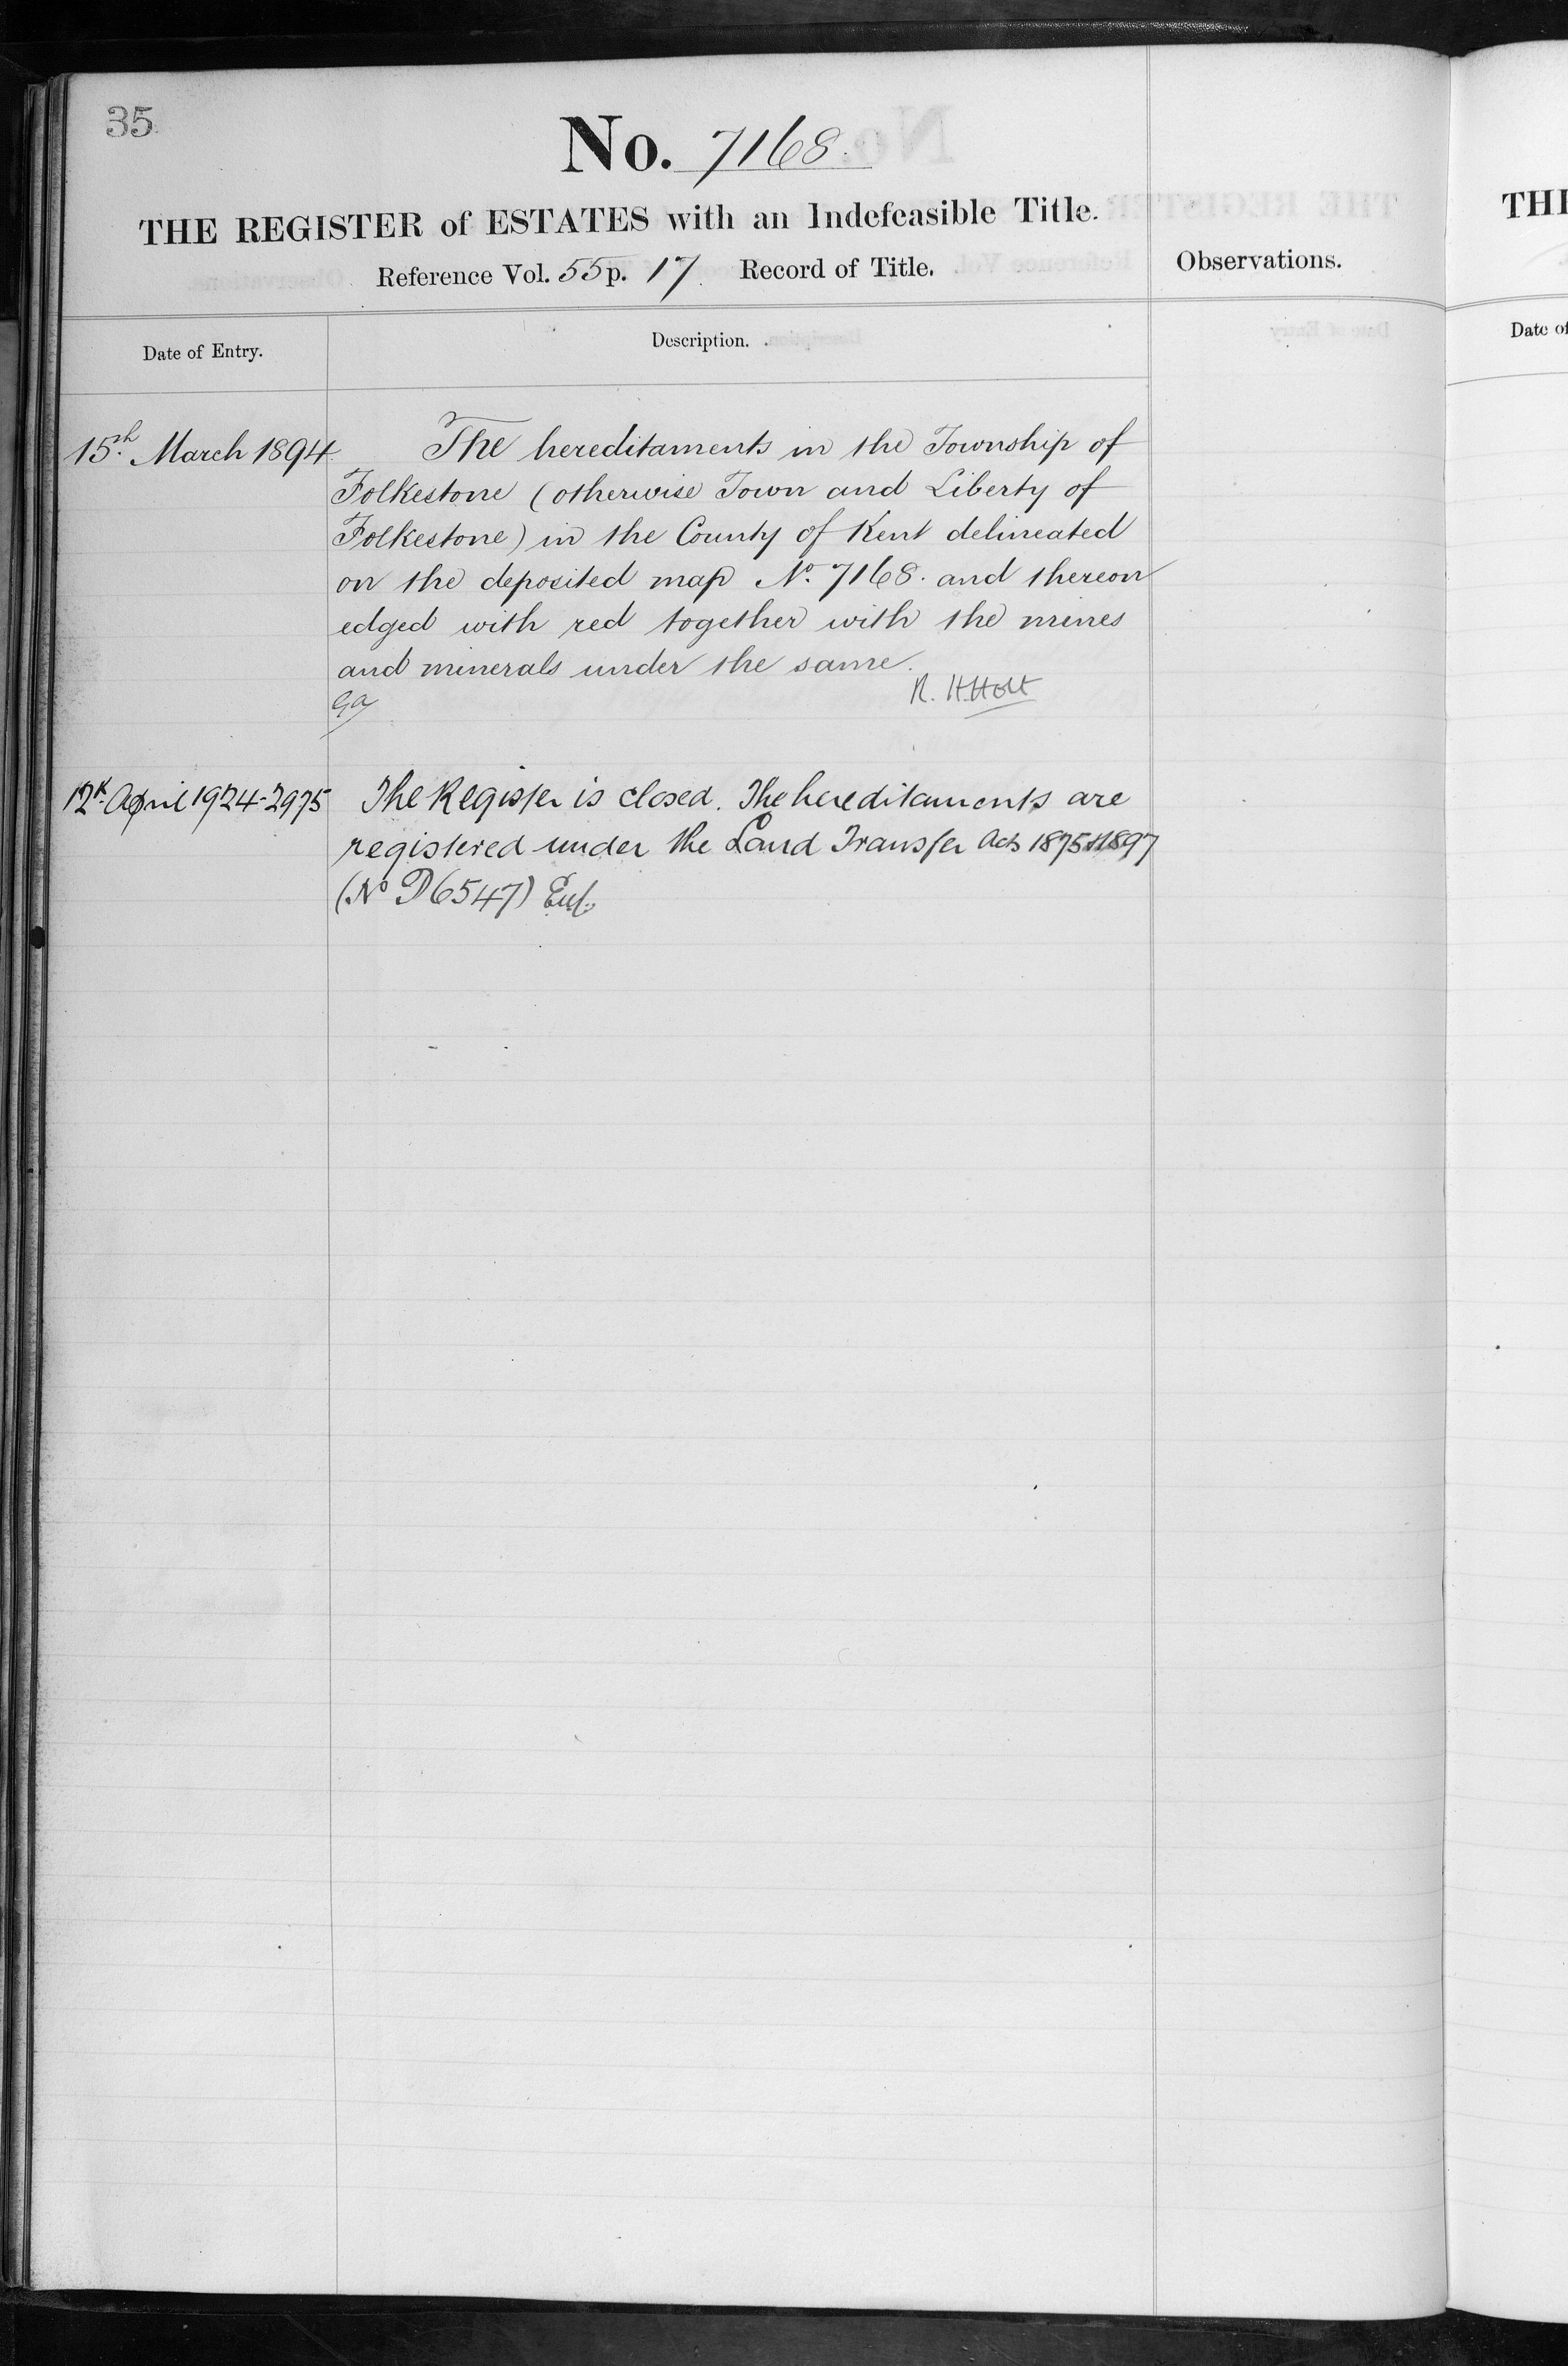 35
No. 7168.
THE REGISTER of ESTATES with an Indefeasible Title.
Reference Vol. 55 p. 17. Record of Title.
Observations.
Date of Entry.
Description.
15th March 1894.
The hereditaments in the Township of
Folkestone (otherwise Town and Liberty of
Folkestone) in the County of Kent delineated
on the deposited map No. 7168. and thereon
edged with red together with the mines
and minerals under the same.
R. H. Holt
12th April 1924-2975
The Register is closed. The hereditaments are
registered under the Land Transfer Acts 1875 & 1897
(No D6547)
THE
Date of